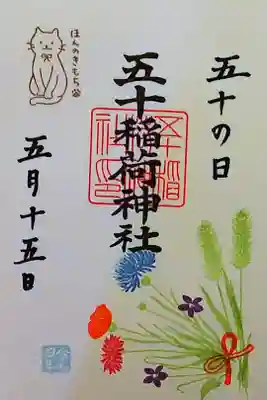 五十の日
五十稲荷神社
ほんのきもち
五月十五日